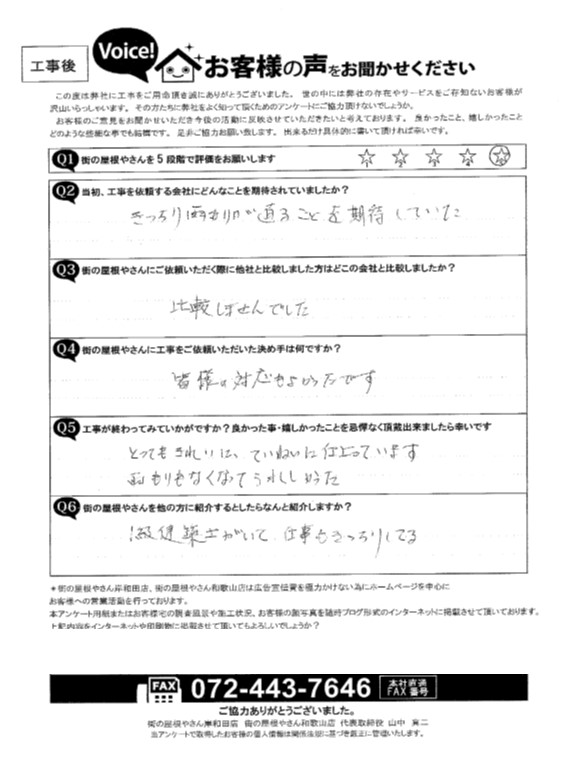 工事後
Voice!
お客様の声をお聞かせください
この度は弊社に工事をご用命頂き誠にありがとうございました。 世の中には弊社の存在やサービスをご存知ないお客様が
沢山いらっしゃいます。その方たちに弊社をよく知って頂くためのアンケートにご協力頂けないでしょうか。
お客様のご意見をお聞かせいただき今後の活動に反映させていただきたいと考えております。 良かったこと、嬉しかったこと
どのような些細な事でも結構です。 是非ご協力お願い致します。 出来るだけ具体的に書いて頂ければ幸いです。
Q1 街の屋根やさんを5段階で評価をお願いします
1 2 3 4 5
Q2 当初、工事を依頼する会社にどんなことを期待されていましたか？
きっちり雨もりが直ることを期待していた
Q3 街の屋根やさんにご依頼いただく際に他社と比較しました方はどこの会社と比較しましたか？
比較しませんでした
Q4 街の屋根やさんに工事をご依頼いただいた決め手は何ですか？
皆様の対応もよかったです
Q5 工事が終わってみていかがですか？良かった事・嬉しかったことを忌憚なく頂戴出来ましたら幸いです
とってもきれいに、ていねいに仕上っています
雨もりもなくなってうれしかった
Q6 街の屋根やさんを他の方に紹介するとしたらなんと紹介しますか？
1級建築士がいて、仕事もきっちりしてる
＊街の屋根やさん岸和田店、街の屋根やさん和歌山店は広告宣伝費を極力かけない為にホームページを中心に
お客様への営業活動を行っております。
本アンケート用紙またはお客様宅の調査風景や施工状況、お客様の顔写真を随時ブログ形式のインターネットに掲載させて頂いております。
上記内容をインターネットや印刷物に掲載させて頂いてもよろしいでしょうか？
FAX 072-443-7646 本社直通 FAX番号
ご協力ありがとうございました。
街の屋根やさん岸和田店 街の屋根やさん和歌山店 代表取締役 山中 真二
当アンケートで取得したお客様の個人情報は関係法規に基づき厳正に管理いたします。